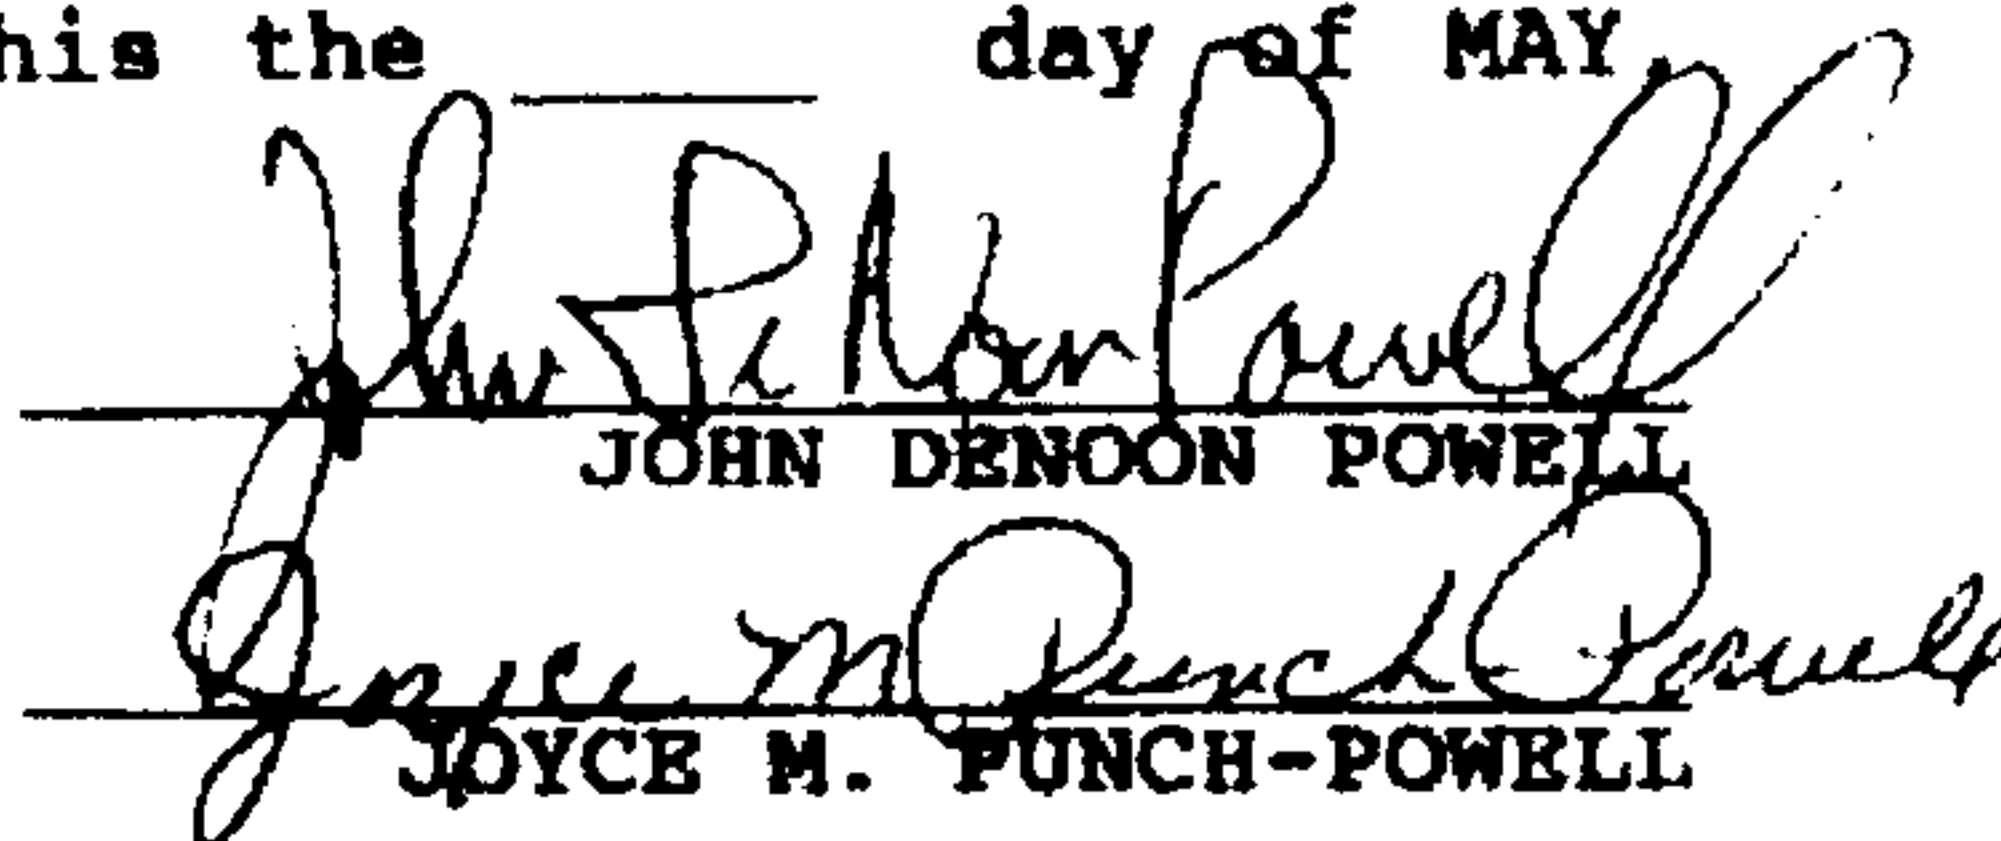 his the ____ day of MAY,
John DeNoon Powell
JOHN DENOON POWELL
Joyce M Punch-Powell
JOYCE M. PUNCH-POWELL